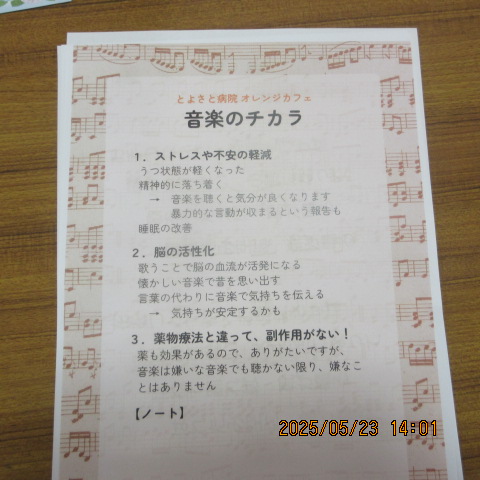 とよさと病院 オレンジカフェ
音楽のチカラ
1．ストレスや不安の軽減
うつ状態が軽くなった
精神的に落ち着く
→ 音楽を聴くと気分が良くなります
暴力的な言動が収まるという報告も
睡眠の改善
2．脳の活性化
歌うことで脳の血流が活発になる
懐かしい音楽で昔を思い出す
言葉の代わりに音楽で気持ちを伝える
→ 気持ちが安定するかも
3．薬物療法と違って、副作用がない！
薬も効果があるので、ありがたいですが、
音楽は嫌いな音楽でも聴かない限り、嫌なこ
とはありません
【ノート】
2025/05/23 14:01